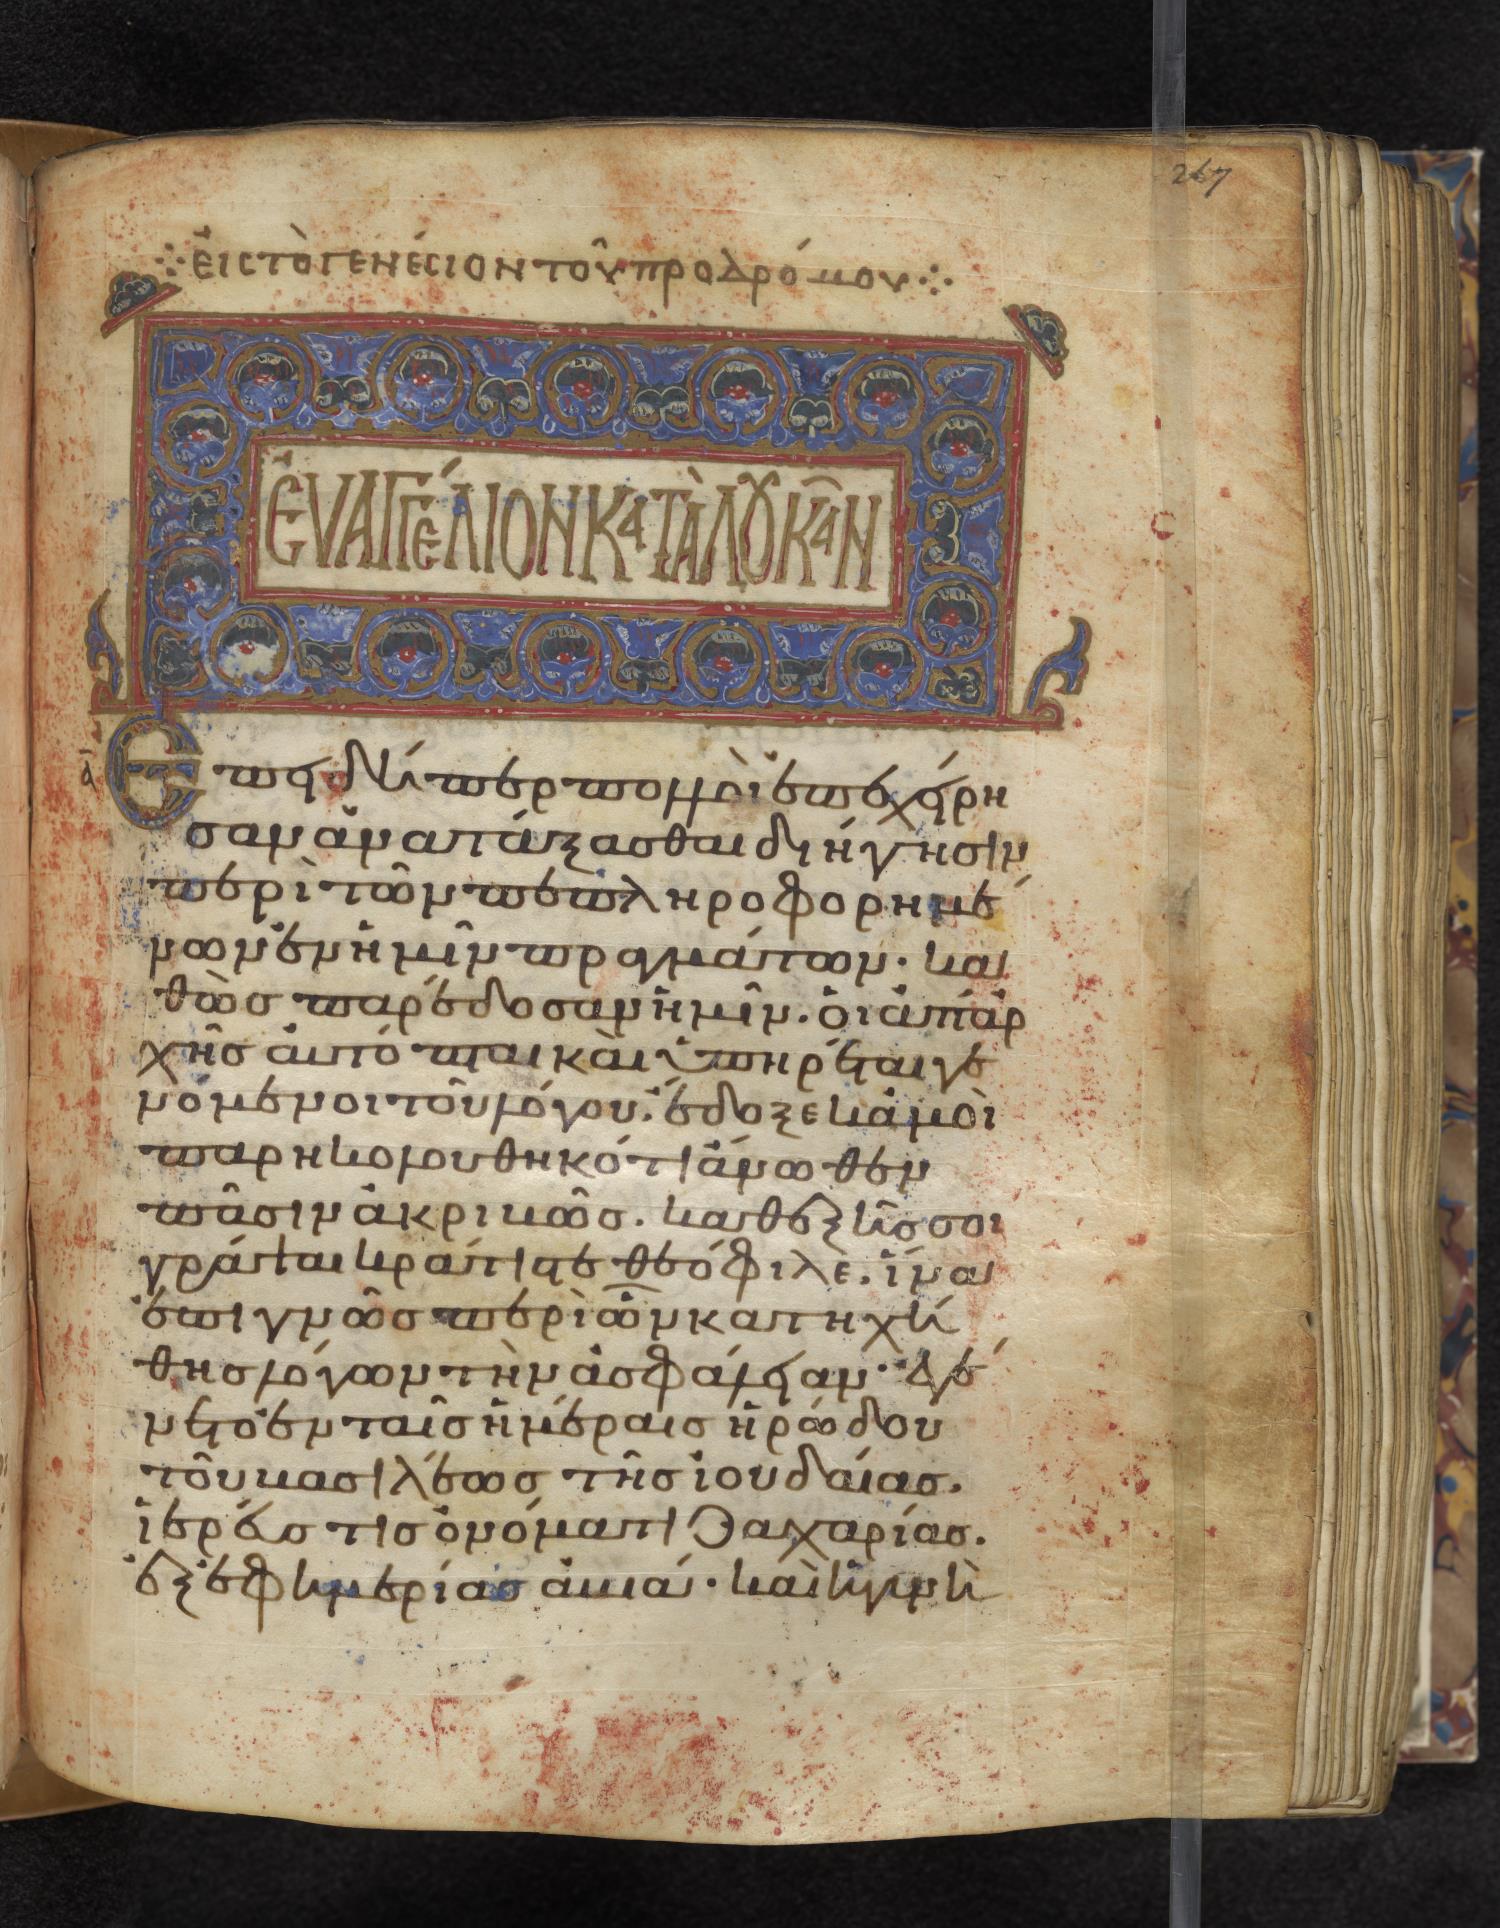 267
εἰς τὸ γενέσιον τοῦ προδρόμου
ΕΥΑΓΓΕΛΙΟΝ ΚΑΤΑ ΛΟΥΚΑΝ
ᾱ
Ἐπειδήπερ πολλοὶ ἐπεχείρη
σαν ἀναπάξασθαι διήγησιν
περὶ τῶν πεπληροφορημέ
νων ἐν ἡμῖν πραγμάτων. κα
θὼς παρέδοσαν ἡμῖν. οἱ ἀπάρ
χῆς αὐτόπται καὶ ὑπηρέται γε
νόμενοι τοῦ λόγου. ἔδοξε κἀμοὶ
παρηκολουθηκότι ἄνωθεν
πᾶσιν ἀκριβῶς. καθεξῆς σοι
γράψαι κράτιστε θεόφιλε. ἵνα
ἐπιγνῶς περὶ ὧν κατηχή
θης λόγων τὴν ἀσφάλειαν. Ἐγέ
νετο ἐν ταῖς ἡμέραις ἡρώδου
τοῦ βασιλέως τῆς ἰουδαίας.
ἱερεύς τις ὀνόματι Ζαχαρίας.
ἐξ ἐφημερίας ἀβιά. καὶ ἡ γυνὴ